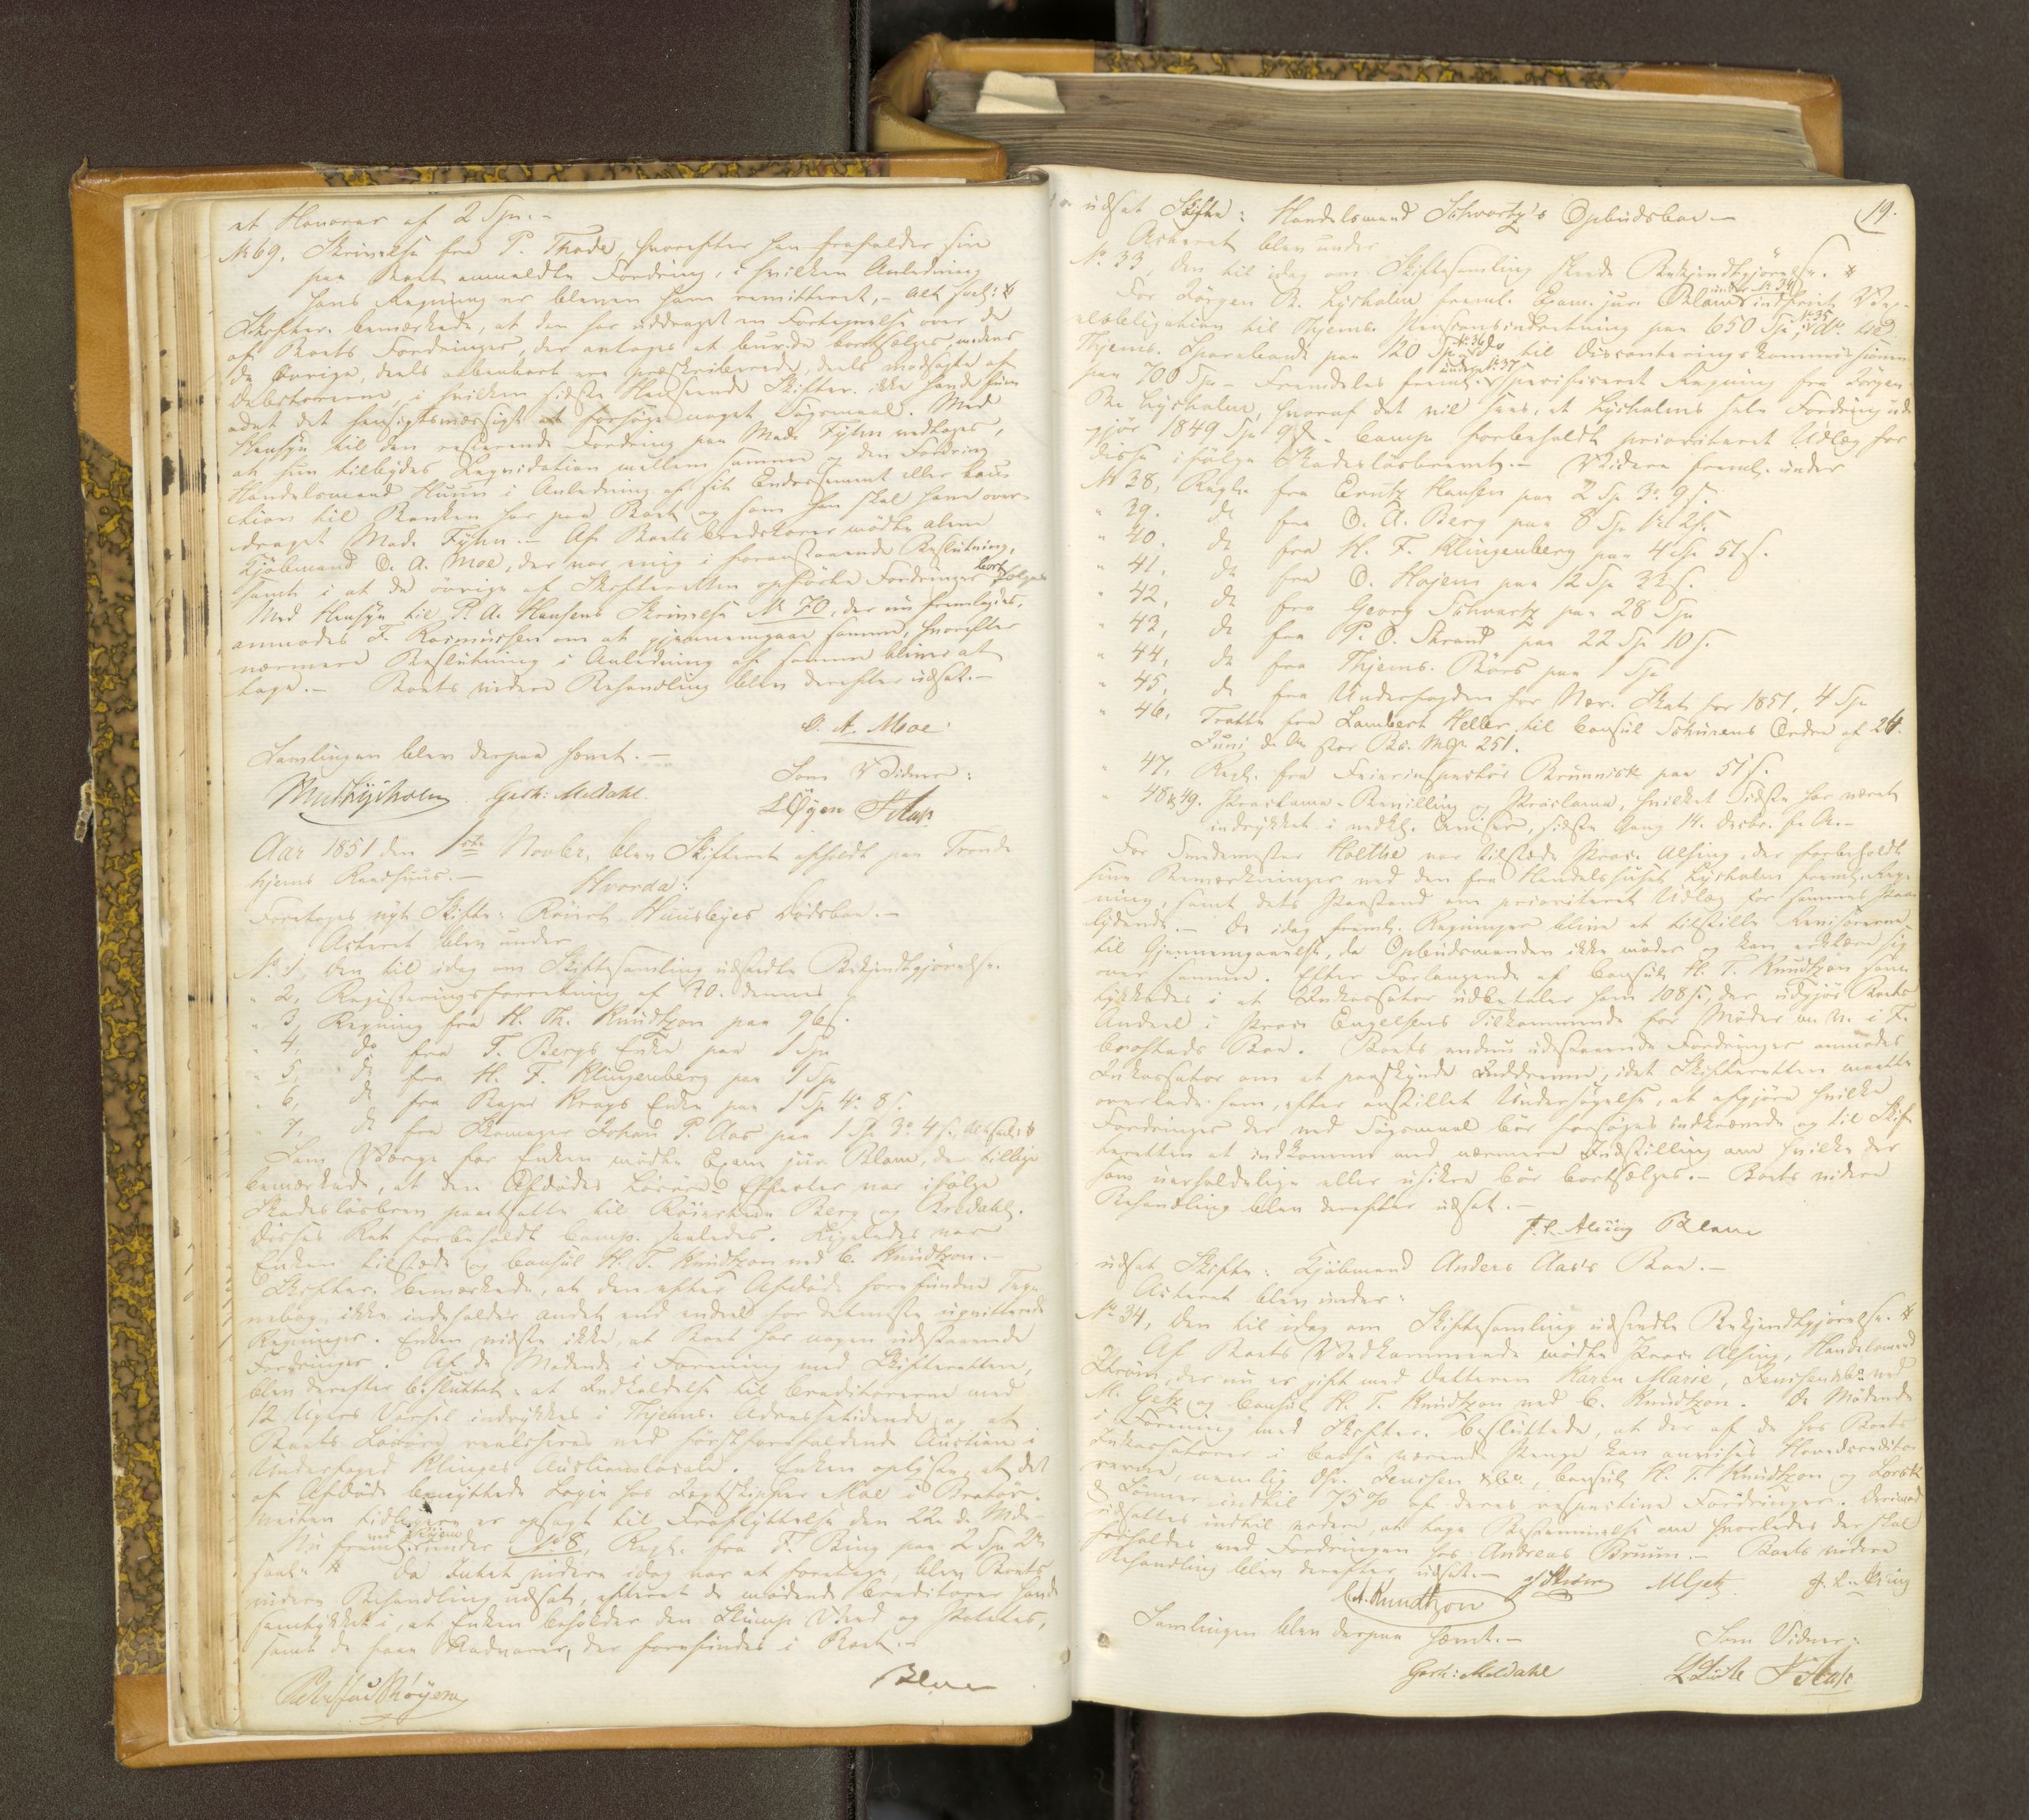 et Honorar af 2 Spr. -
No 69, Skrivelse fra P. Thode, hvorefter han frafalder sin
paa Boet anmeldte Fordring, i hvilken Anledning
hans Regning er bleven ham remitteret, - alt saal:
Skifter. bemærkede, at den har uddraget en Fortegnelse over de
af Boets Fordringer, der antages at burde bortsælges, medens
de øvrige, deels aabenbart ere præskriberede, deels modsagte af
Debitorerne, i hvilken sidste Henseende Skifter. ikke havde fun-
det det hensigtsmæssigt at forsøge noget Søgsmaal. Med
Hensyn til den resterende Fordring paa Mad. Fyhn vedtoges,
at hun tilbydes Liqvidation mellem samme og den Fordring
Handelsmand Huun i Anledning af sit Endossement eller Cau-
tion til Banken har paa Boet og som han skal have over-
draget Mad. Fyhn. - Af Boets Creditorer mødte alene
Kjøbmand O. A. Moe, der var enig i foranstaaende Beslutning,
samt i at de øvrige af Skifteretten opførte Fordringer bortsælges
Med Hensyn til P. A. Hansens Skrivelse No 70, der nu fremlagdes,
anmodes F. Rasmussen om at gjennemgaae samme, hvorefter
nærmere Beslutning i Anledning af samme bliver at
tage. - Boets videre Behandling blev derefter udsat. -
O. A. Moe
Samlingen blev derpaa hævet. -
Som Vidner:
Gerh: Meldahl.
L Øyen
Aar 1851 den 1ste Novbr. blev Skifteret afholdt paa Trond-
hjems Raadhuus. - Hvorda:
Foretoges nyt Skifte: Røiert Huusbyes Dødsboe. -
Acteret blev under
No 1, den til idag om Skiftesamling udstedte Bekjendtgjørelse.
" 2, Registreringsforretning af 20. dennes
" 3, Regning fra H. Th. Knudtzon paa 96 s.
" 4, do fra T. Bergs Enke paa 1 Spr
" 5, do fra H. F. Klingenberg paa 1 Spr
" 6, do fra Bager Krags Enke paa 1 Sp. 4 . 8 s.
" 7, do fra Skomager Johan P. Aas paa 1 Sp. 3 . 4 s. alt saal:
Som Værge for Enken mødte Exam. jur. Blom, der tillige
bemærkede, at den Afdødes Løsøre Effecter var ifølge
Skadesløsbrev pantsatte til Røierterne Berg og Bredahl.
Disses Ret forbeholdt Comp. saaledes. Ligeledes var
Enken tilstede og Consul H. T. Knudtzon ved C. Knudtzon. -
Skifter. bemærkede, at den efter Afdøde forefundne Teg-
nebog ikke indeholder andet end endeel for det meste uqvitterede
Regninger. Enken vidste ikke, at Boet har nogen udstaaende
Fordringer. Af de Mødende i Forening med Skifteretten,
blev derefter besluttet: at Indkaldelse til Creditorerne med
12 Ugers Varsel indrykkes i Thjems. Adressetidende og at
Boets Løsøre realiseres ved førstforefaldende Auction i
Underfoged Klinges Auctionslocale. Enken oplyste, at det
af Afdøde benyttede Logie hos Fragtskipper Moe i Brator-
veiten tidligere er opsagt til Fraflyttelse den 22 d. Md.
Nu freml. ved Røiem under No 8, Regn. fra F. Bing paa 2 Sp. 2
saal: Da Intet videre idag var at foretage, blev Boets
videre Behandling udsat, efterat de mødende Creditorer havde
samtykket i, at Enken beholder den Slump Veed og Poteter,
samt de faae Madvarer, der forefindes i Boet. -
Blom
19.
udsat Skifte: Handelsmand Schvartz's Opbudsboe. -
Acteret blev under
No 33, den til idag om Skiftesamling skeede Bekjendtgjørelse.
For Jørgen B. Lysholm freml. Exam. jur. Blom under No 34 indfriet Vex-
elobligation til Thjems. Pensionsindretning paa 650 Sp., No 35 do til
Thjems. Sparebank paa 120 Sp., No 36 do til Disconteringskommissionen
paa 700 Spr. - Fremdeles freml. under No 37 specificeret Regning fra Jørgen
B. Lysholm, hvoraf det vil sees, at Lysholms hele Fordring ud-
gjør 1849 Spr 9 s. - Comp. forbeholdt prioriteret Udlæg for
disse ifølge Skadesløsbrevet. - Videre freml. under
No 38, Regn. fra Erntz Hansen paa 2 Sp 3 . 9 s.
" 39. do fra O. A. Berg paa 8 Sp. 2 s.
" 40. do fra H. F. Klingenberg paa 4 Sp 51 s.
" 41, do fra O. Hojem paa 12 Sp 32 s.
" 42, do fra Georg Schvartz paa 28 Spr
" 43, do fra P. O. Strand paa 22 Sp. 10 s.
" 44, do fra Thjems. Børs paa 1 Spr
" 45, do fra Underfogden for Nær. Skat for 1851, 4 Spr
" 46, Tratte fra Lambert Heller til Consul Schurens Ordre af 24.
Juni d. A. stor Bc. M. 251.
" 47, Regn. fra Feierinspectør Brunnick paa 51 s.
" 48 & 49. Proclama-Bevilling og Proclama, hvilket Sidste har været
indrykket i vedkl. Aviser, sidste Gang 14. Octbr. f. A. -
For Smedemester Holthe var tilstede Proc. Alsing, der forbeholdt
sine Bemærkninger ved den fra Handelshuset Lysholm freml. Reg-
ning, samt dets Paastand om prioriteret Udlæg for sammes Paa-
lydende. - De idag freml. Regninger blive at tilstille Revisorerne
til Gjennemgaaelse, da Opbudsmanden ikke møder og kan erklære sig
over samme. Efter Forlangende af Consul H. T. Knudtzon sam-
tykkedes i at Inkassator udbetaler ham 108 s., der udgjør Boets
Andeel i Proc. Engelsens Tilkommende for Møder m. v. i F.
Croftads Boe. Boets endnu udestaaende Fordringer anmodes
Inkassator om at paaskynde Inddrevne, idet Skifteretten maatte
overlade ham, efter anstillet Undersøgelse, at afgjøre hvilke
Fordringer der ved Søgsmaal bør forsøges inddrevne og til Skif-
teretten at indkomme med nærmere Indstilling om hvilke der
som uerholdelige eller usikre bør bortsælges. - Boets videre
Behandling blev derefter udsat. -
J. L. Alsing Blom
udsat Skifte: Kjøbmand Anders Aas's Boe. -
Acteret blev under:
No 34, den til idag om Skiftesamling udstedte Bekjendtgjørelse.
Af Boets Vedkommende mødte Proc. Alsing, Handelsmand
Strøm, der nu er gift med Datteren Karen Marie, Jenssen & Co. ved
M. Getz og Consul H. T. Knudtzon ved C. Knudtzon. De Mødende
i Forening med Skifter. besluttede, at der af de hos Boets
Inkassatorer i Cassa værende Penge kan anvises Hovedcredito-
rerne, nemlig Dhr. Jenssen & Co., Consul H. T. Knudtzon og Lorck
& Sønner indtil 75% af deres respective Fordringer. Derimod
udsattes indtil videre, at tage Bestemmelse om hvorledes der skal
forholdes med Fordringen hos Andreas Bruun. - Boets videre
Behandling blev derefter udsat. - M Getz J. L. Alsing
C. Knudtzon
Samlingen blev derpaa hævet. -
Som Vidner:
Gerh: Meldahl